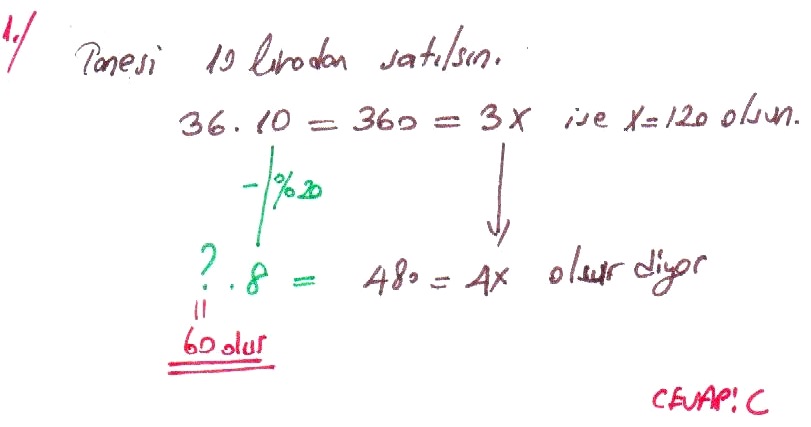 1.)
Tanesi 10 liradan satılsın.
36 . 10 = 360 = 3x ise x=120 olsun.
- %20
? . 8 = 480 = 4x olur diyor
60 olur
CEVAP: C